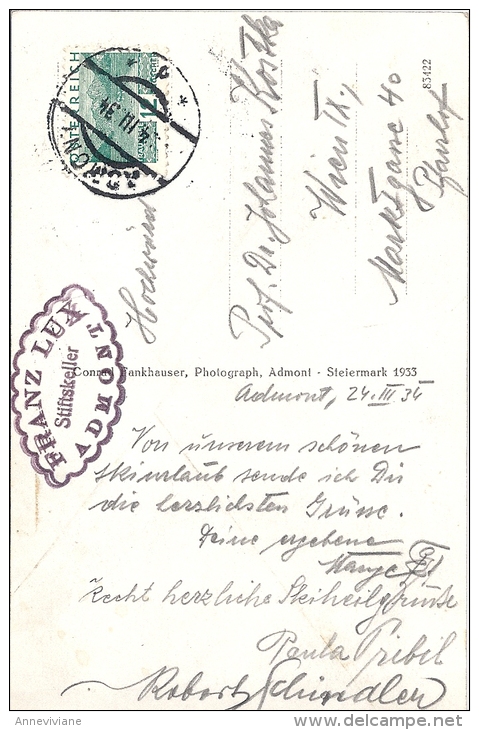 ÖSTERREICH
12
GROSCHEN
24.III.34
ADMONT
Prof. Dr. Johannes
Wien IX.,
Marktgasse 40
Pfarrhof
83422
FRANZ LUX
Stiftskeller
ADMONT
Conrad Fankhauser, Photograph, Admont - Steiermark 1933
Admont, 24.III.34
Von unserem schönen
Skiurlaub sende ich Dir
die herzlichsten Grüsse.
Deine ergebene
Recht herzliche Skiheilgrüße
Paula Pribil
Robert Schindler
Anneviviane
http://www.delcampe.net